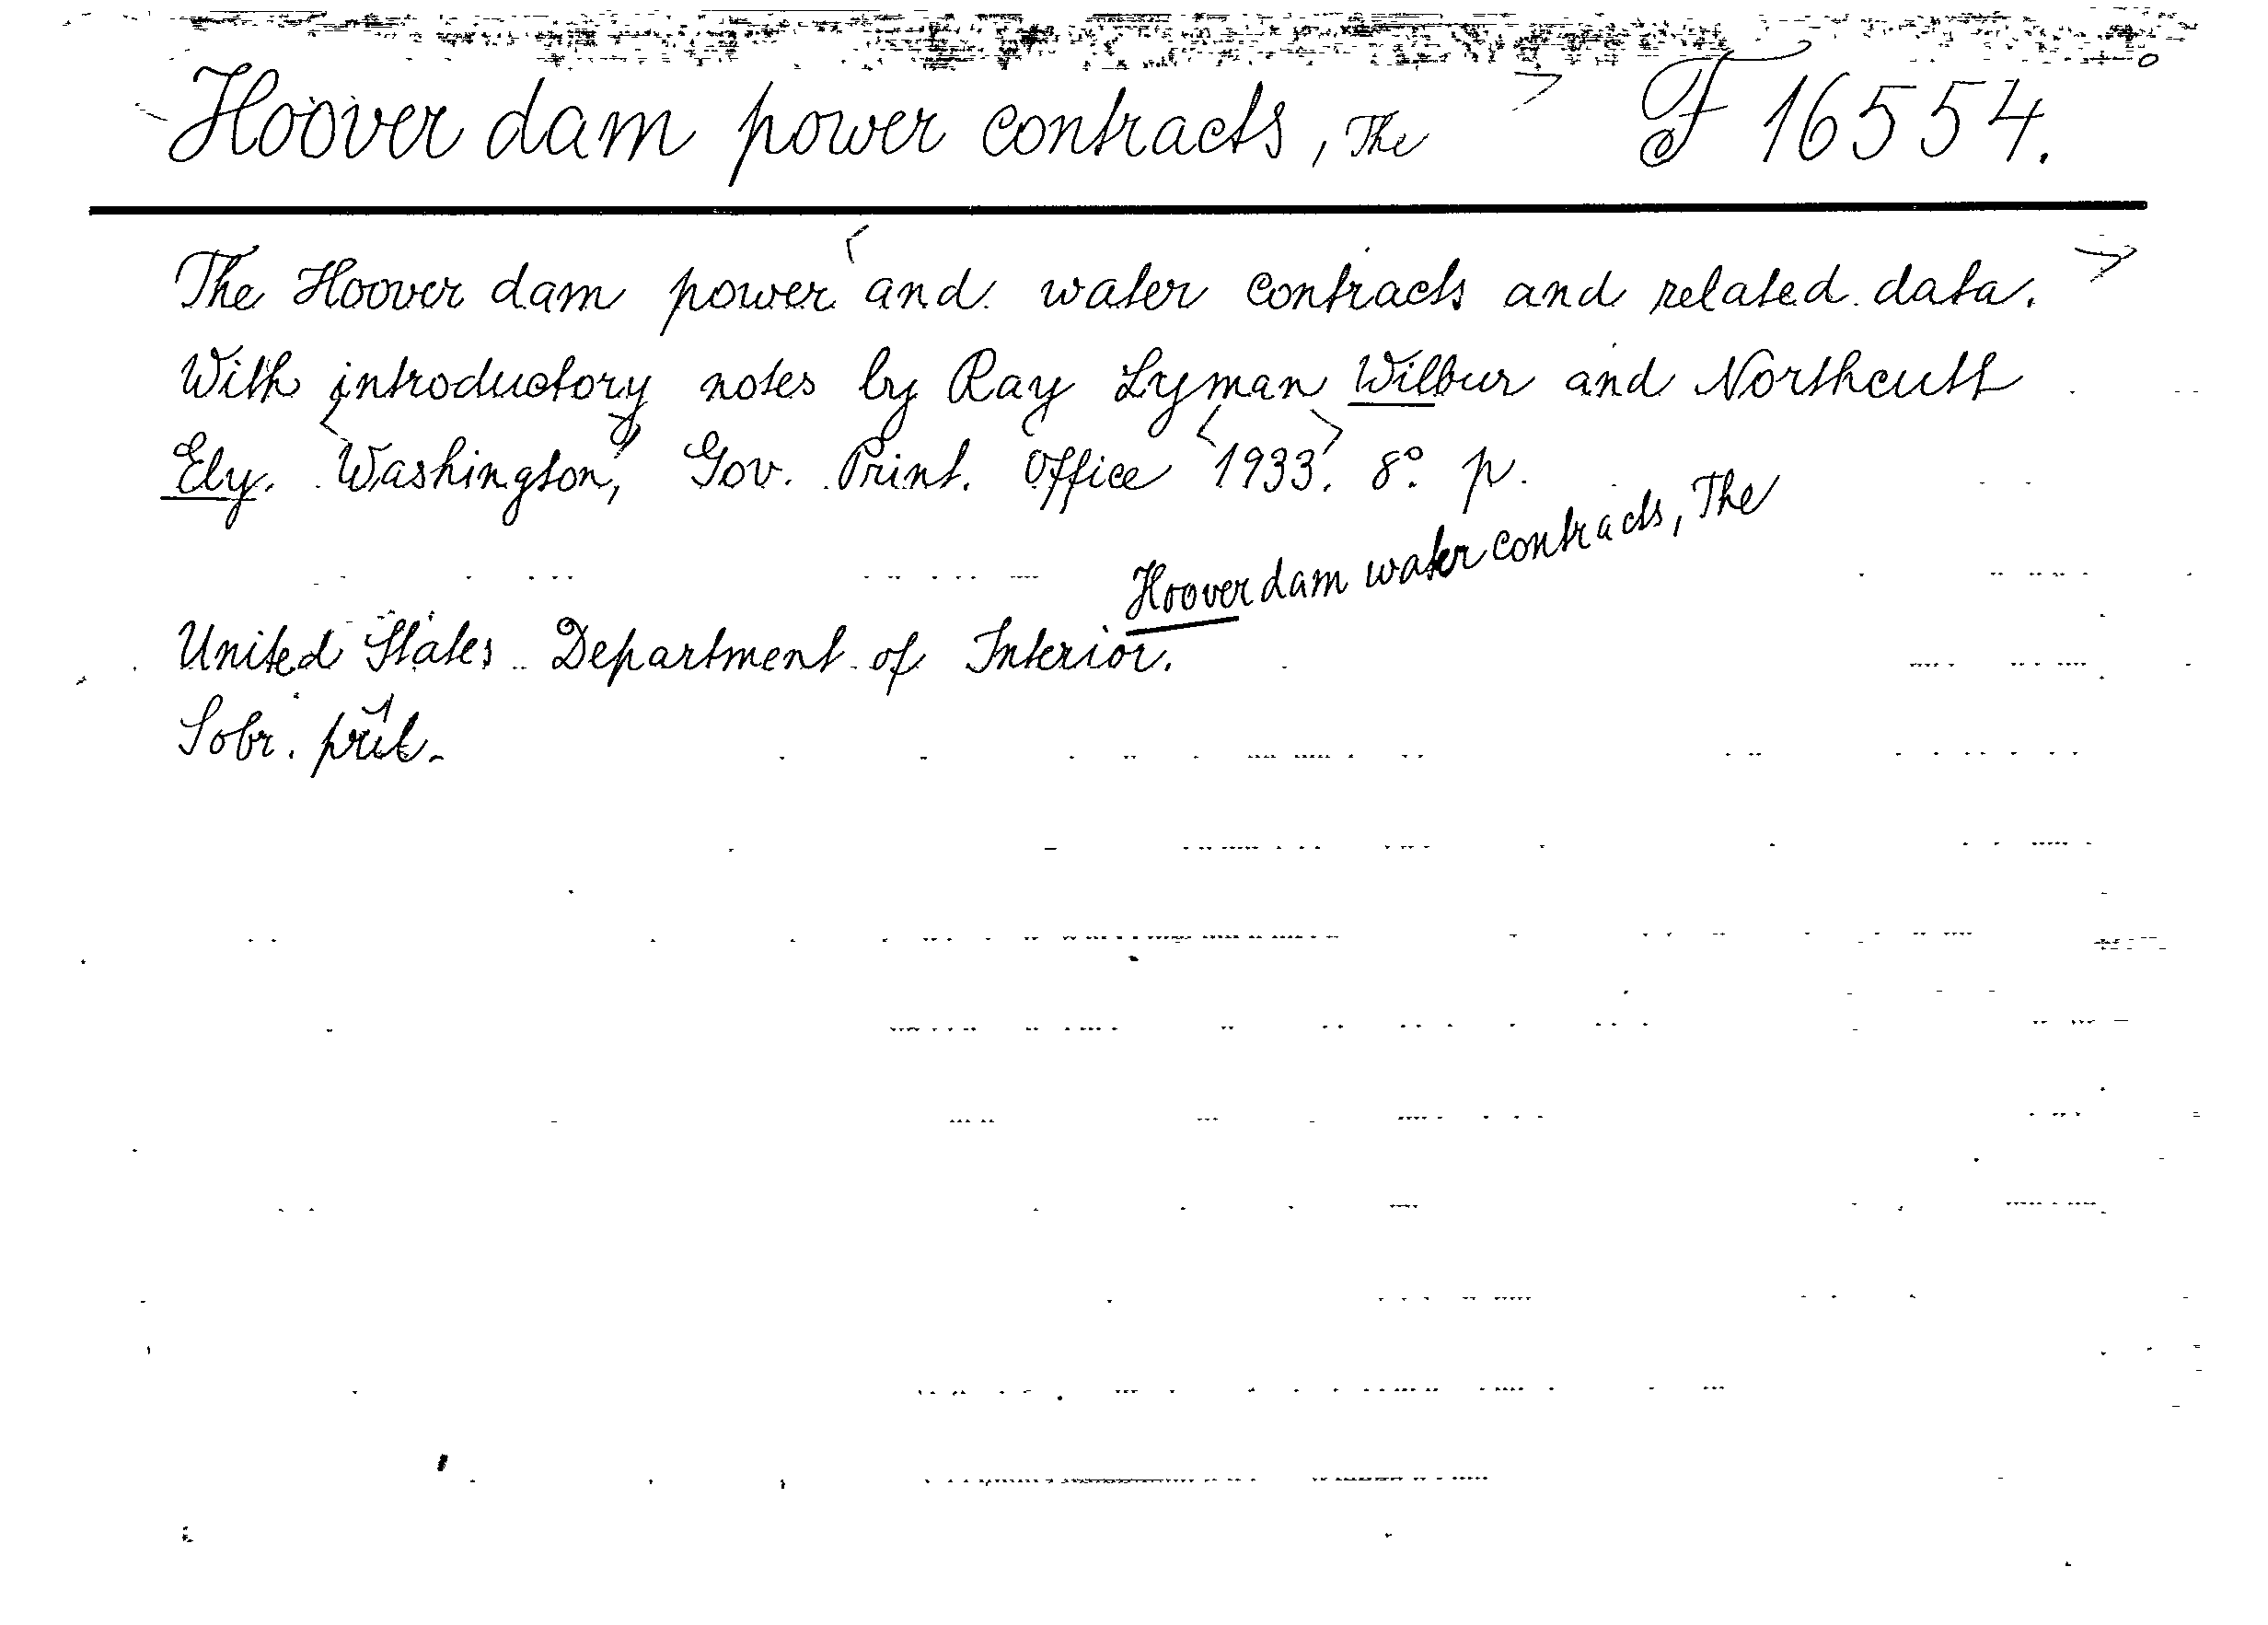 Hoover dam power contracts, The F 16554.
The Hoover dam power and water contracts and related data.
With introductory notes by Ray Lyman Wilbur and Northcutt
Ely. Washington, Gov. Print. Office 1933. 8° p.
Hoover dam water contracts, The
United States Department of Interior.
Sobr. příl.